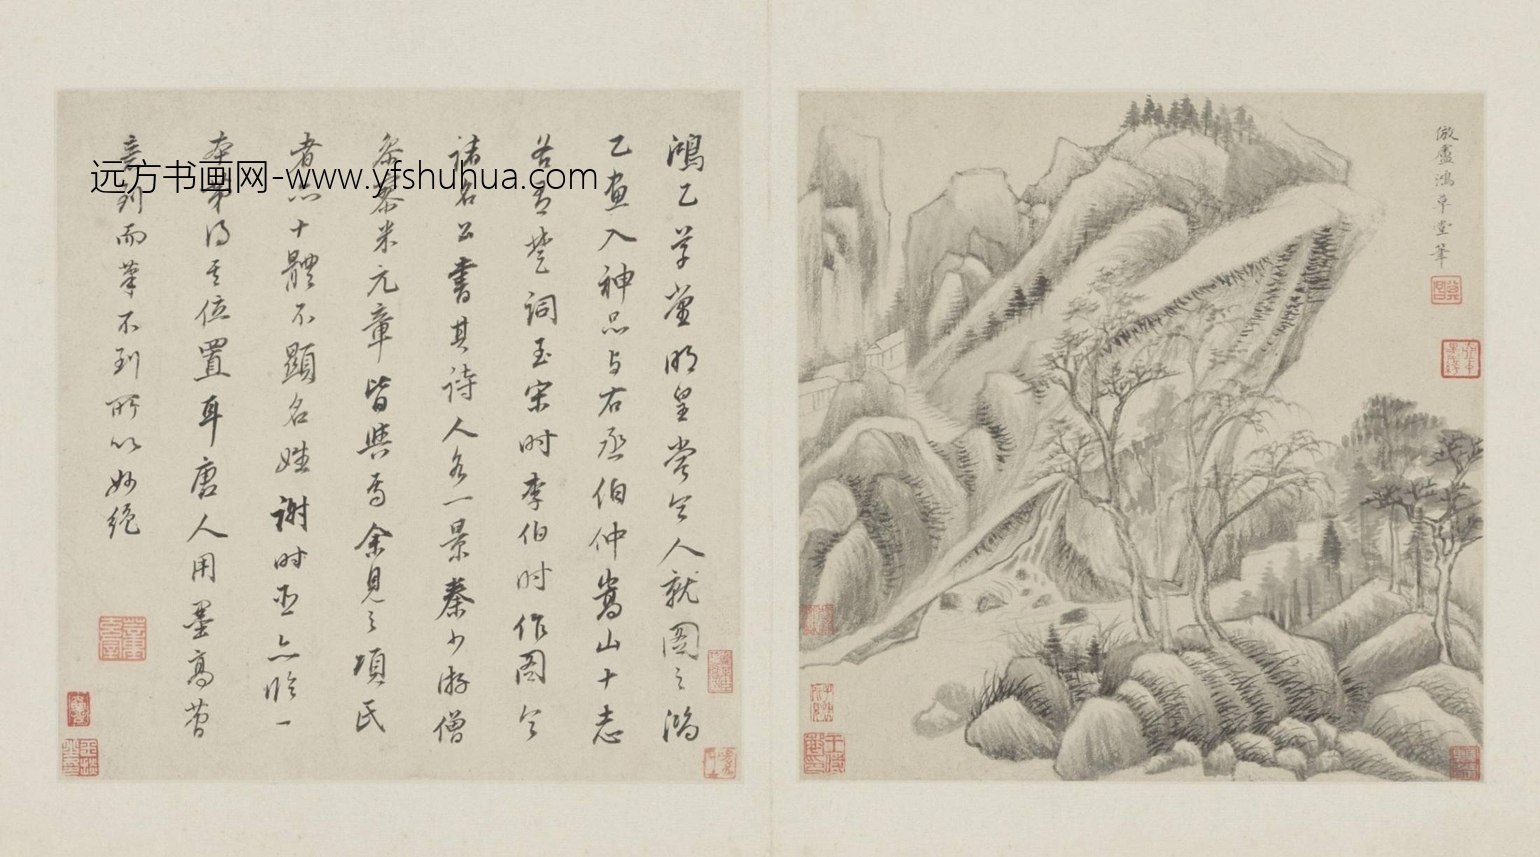 倣盧鴻草堂筆
鴻乙草堂明皇嘗令人就圖之鴻
乙畫入神品与右丞伯仲嵩山十志
若晋楚詞至宋时李伯时作图令
諸名公書其诗人各一景秦少游僧
参寥米元章皆與焉余見之項氏
者只十體不顯名姓谢时臣亦临一
本第得其位置耳唐人用墨高苔
意到而筆不到所以妙绝
远方书画网-www.yfshuhua.com